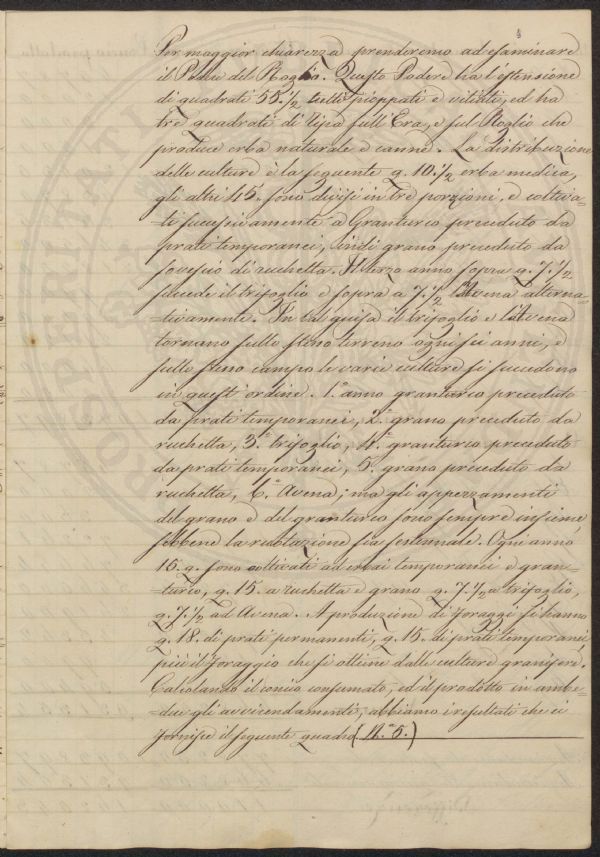 Per maggior chiarezza prenderemo ad esaminare
il Podere del Roglio. Questo Podere ha l'estensione
di quadrati 55.1/2 tutti pioppati e vitati, ed ha
tre quadrati di ripa sull'Era, e sul Roglio che
produce erba naturale e canne. La distribuzione
delle culture è la seguente q. 10.1/2 erba medica,
gli altri 45. sono divisi in tre porzioni, e coltiva-
-ti successivamente a Granturco preceduto da
prati temporanei, indi grano preceduto da
sovescio di ruchetta. Il terzo anno sopra q. 7.1/2
succede il trifoglio e sopra a 7.1/2 l'Avena alterna-
-tivamente. In tal guisa il trifoglio e l'avena
tornano sullo stesso terreno ogni sei anni, e
sullo stesso campo le varie culture si succedono
in quest'ordine. 1.° anno granturco preceduto
da prati temporanei, 2.° grano preceduto da
ruchetta, 3.° trifoglio, 4.° granturco preceduto
da prati temporanei, 5. grano preceduto da
ruchetta, 6.° Avena; ma gli appezzamenti
del grano e del granturco sono sempre insieme
sebbene la ruotazione sia sessennale. Ogni anno
15. q. sono coltivati ad erbai temporanei e gran-
-turco, q. 15. a ruchetta e grano q. 7.1/2 a trifoglio,
q. 7.1/2 ad Avena. A produzione di foraggi si hanno
q. 18. di prati permanenti, q. 15. di prati temporanei,
più il foraggio che si ottiene dalle culture granifere.
Calcolando il concio consumato, ed il prodotto in ambe-
-due gli avvicendamenti, abbiamo i resultati che ci
fornisce il seguente quadro (N.° 5.)
PROSPERITATI